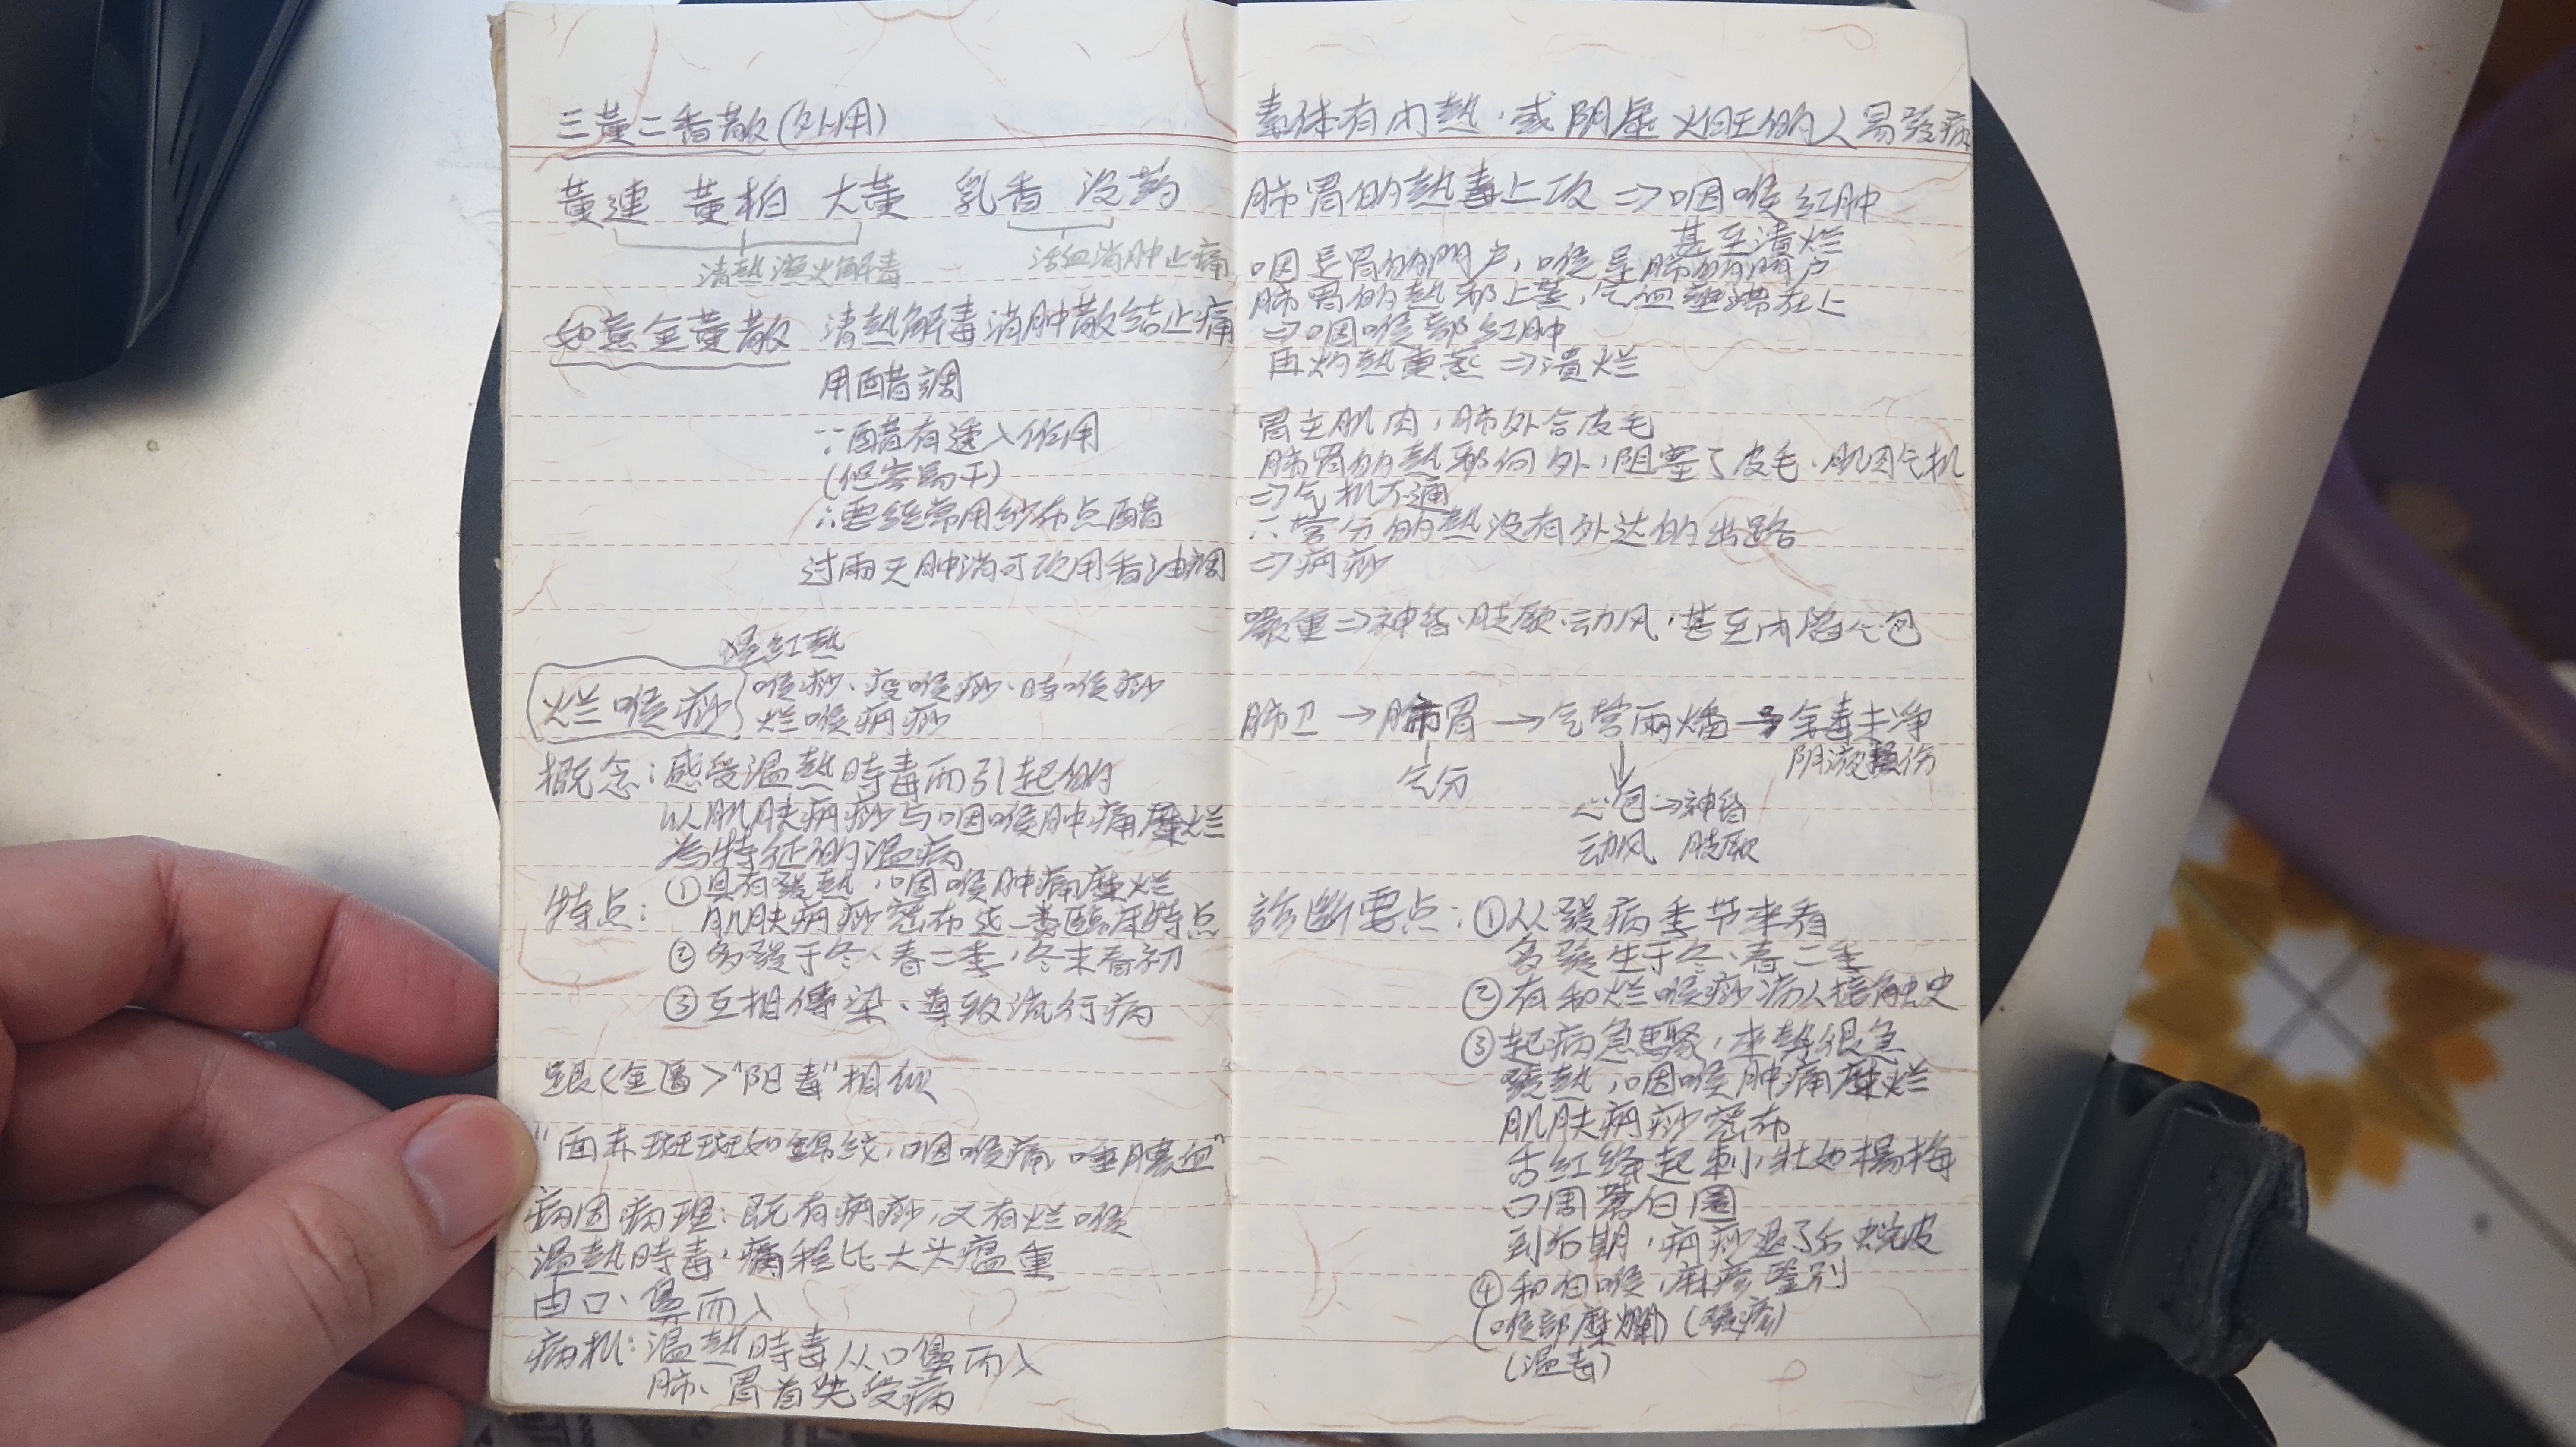 三黄二香散(外用)
黄連 黄柏 大黄 乳香 没药
清熱瀉火解毒
活血消肿止痛
如意金黄散 清熱解毒消肿散结止痛
用醋調
∵醋有速入作用
(但容易干)
∴要经常用纱布点醋
过兩天肿消可改用香油調
猩紅熱
烂喉痧 喉痧、疫喉痧、時喉痧
烂喉病痧
概念:感受温熱時毒而引起的
以肌肤病痧与咽喉肿痛糜烂
为特征的温病
特点:①具有發熱,咽喉肿痛糜烂
肌肤病痧密布这一类臨床特点
②多發于冬、春二季,冬末春初
③互相傳染、導致流行病
跟<金匱>"阳毒"相似
"面赤斑斑如錦纹,咽喉痛,唾膿血"
病因病理:既有病痧,又有烂喉
温熱時毒,病程比大头瘟重
由口、鼻而入
病机:温熱時毒从口鼻而入
肺、胃首先受病
素体有内熱,或阴虚火旺的人易發病
肺胃的熱毒上攻⇒咽喉红肿
甚至潰烂
咽是胃的門户,喉是肺的門户
肺胃的熱邪上蒸,气血壅滞在上
⇒咽喉部红肿
再灼熱熏蒸⇒潰烂
胃主肌肉,肺外合皮毛
肺胃的熱邪向外,阻塞了皮毛、肌肉气机
⇒气机不通
∴营分的熱没有外达的出路
⇒病痧
嚴重⇒神昏、肢厥、动风,甚至内陷心包
肺卫→肺胃→气营兩燔→余毒未净
阴液損伤
气分
心包⇒神昏
动风 肢厥
診断要点:①从發病季节来看
多發生于冬、春二季
②有和烂喉痧病人接触史
③起病急驟,来势很急
發熱,咽喉肿痛糜烂
肌肤病痧密布
舌红绛起刺,壮如楊梅
口周苍白圈
到后期,病痧退了后蜕皮
④和白喉,麻疹鉴别
(喉部糜爛)(發疹)
(温毒)